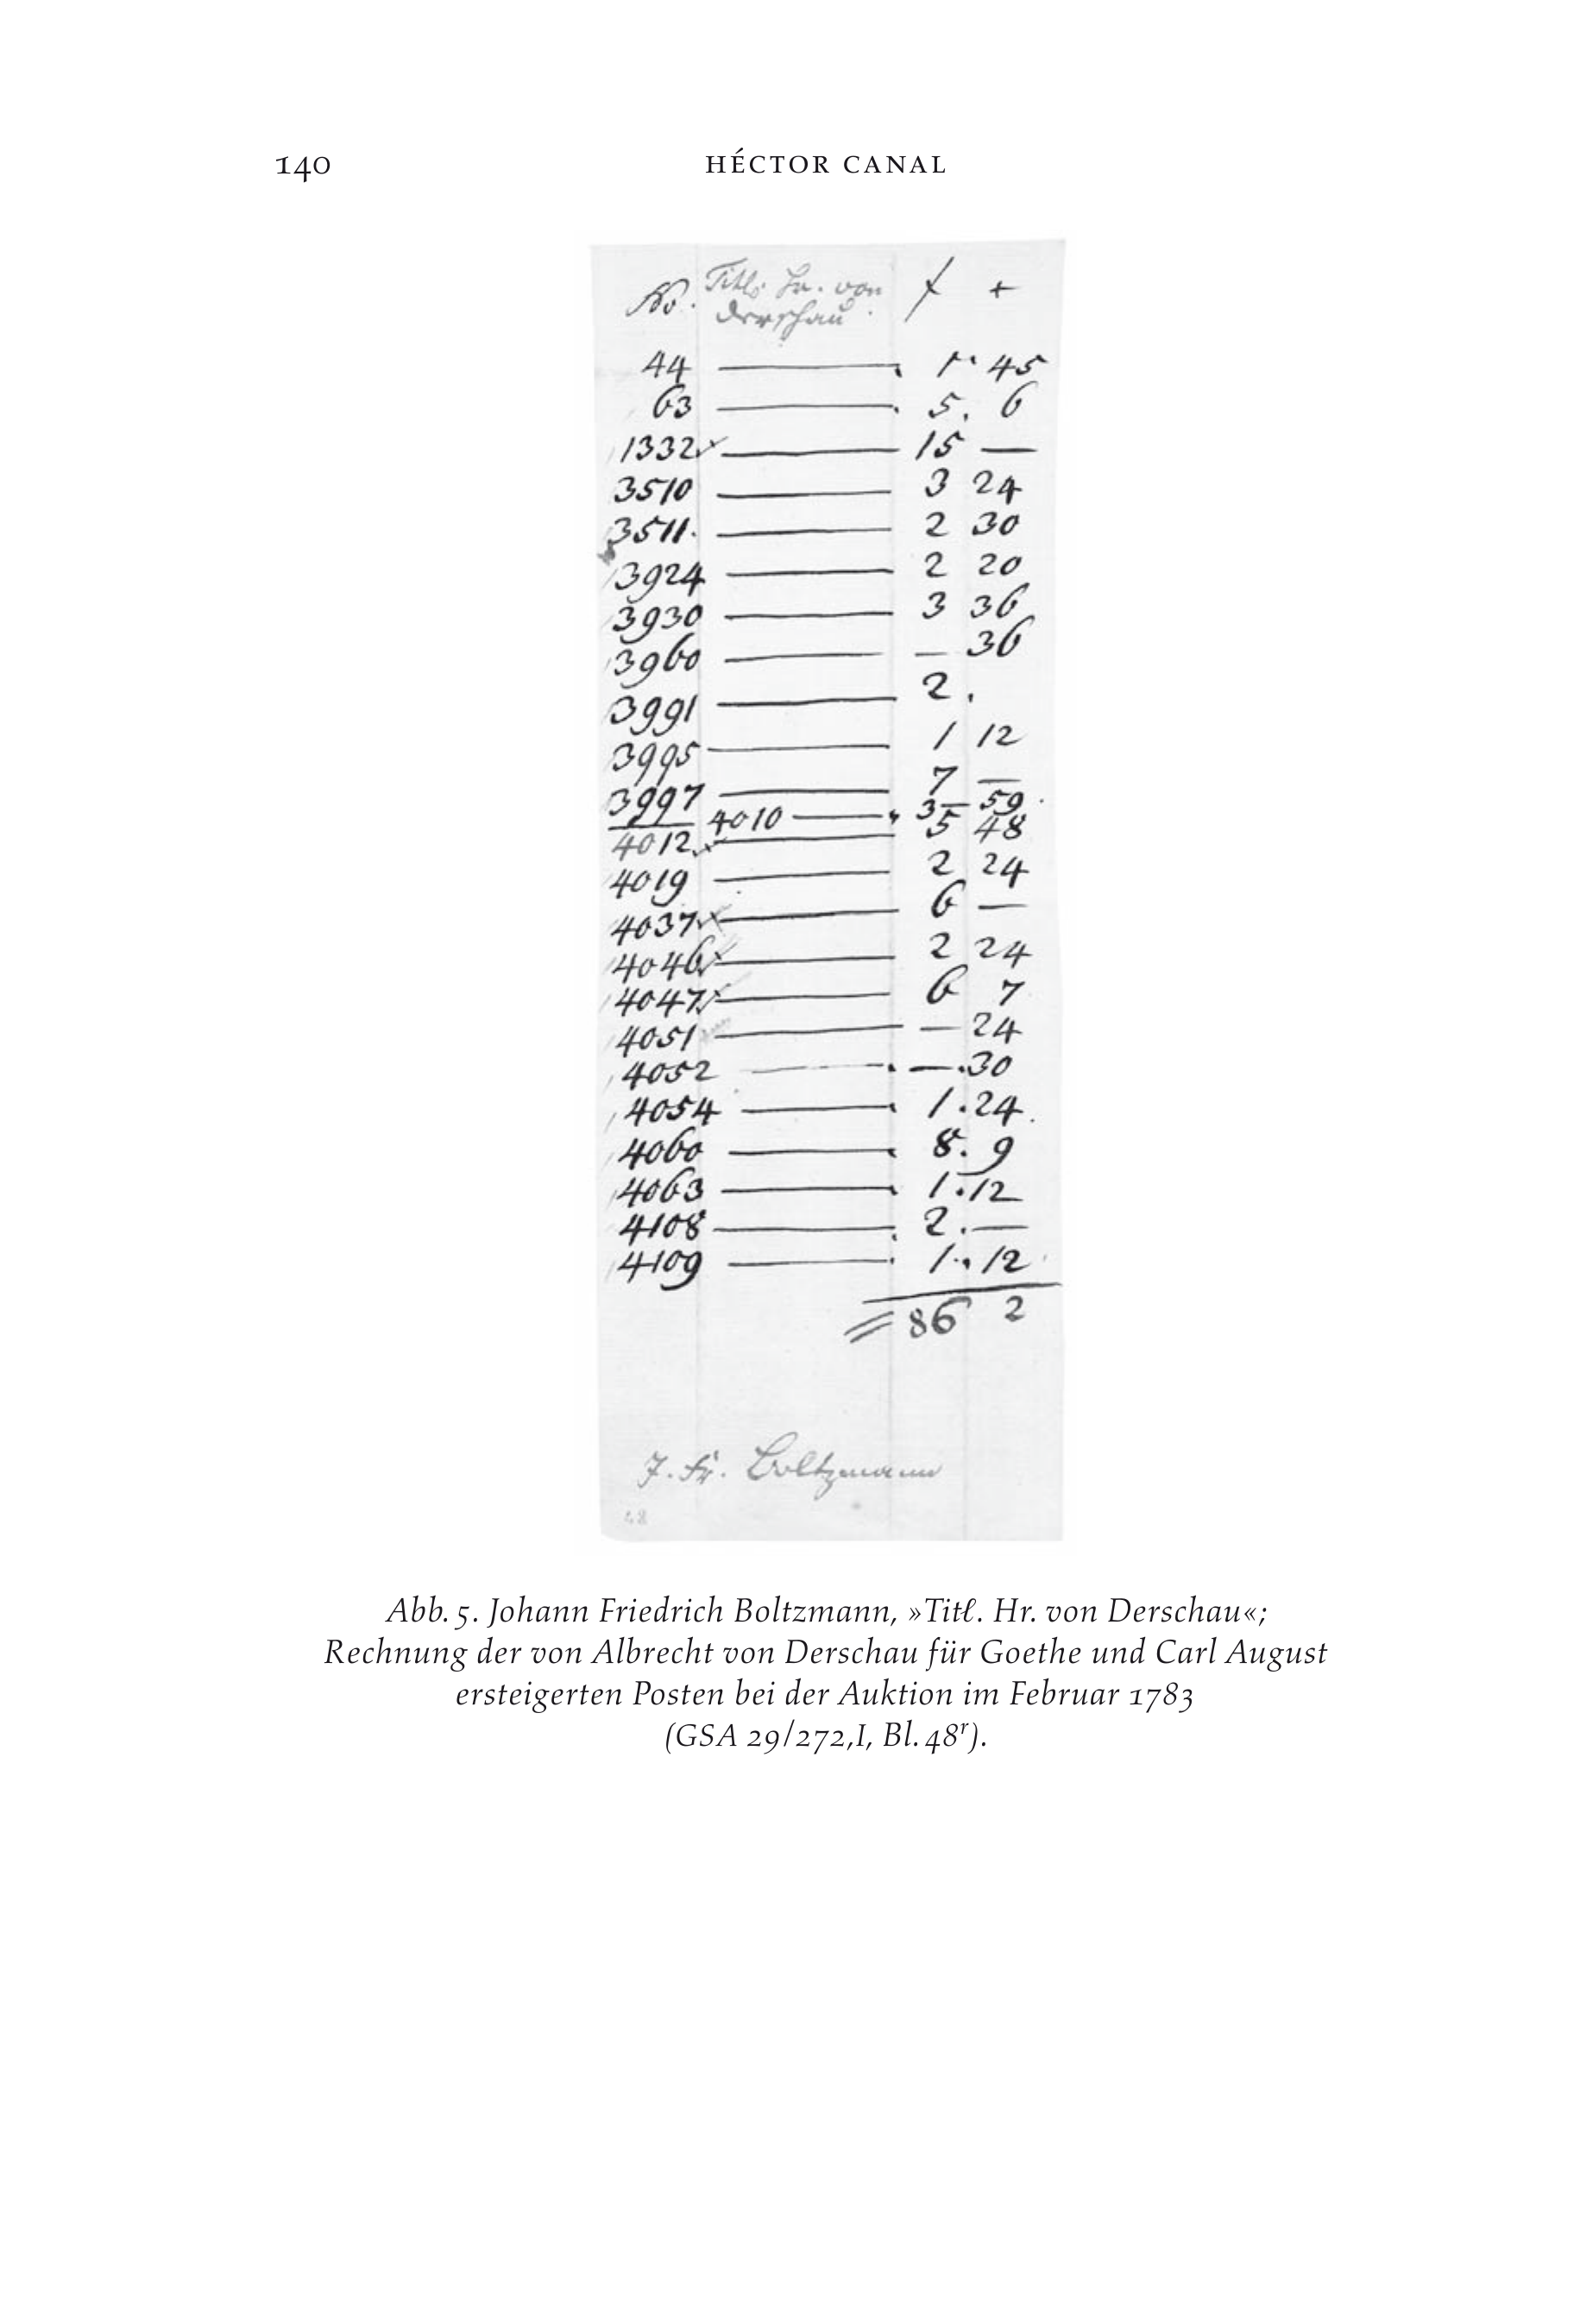 140 HÉCTOR CANAL
No. Titl. Hr. von f +
Derschau.
44 — 1. 45
63 — 5. 6
1332 — 15 —
3510 — 3 24
3511. — 2 30
3924 — 2 20
3930 — 3 36
3960 — — 36
3991 — 2.
3995 — 1 12
3997 — 7 —
4010 — 3 59.
4012 — 5 48
4019 — 2 24
4037 — 6 —
4046 — 2 24
4047 — 6 7
4051 — — 24
4052 — — 30
4054 — 1. 24.
4060 — 8. 9
4063 — 1. 12
4108 — 2. —
4109 — 1. 12
86 2
J. Fr. Boltzmann
48
Abb. 5. Johann Friedrich Boltzmann, »Titł. Hr. von Derschau«;
Rechnung der von Albrecht von Derschau für Goethe und Carl August
ersteigerten Posten bei der Auktion im Februar 1783
(GSA 29/272,I, Bl. 48r).